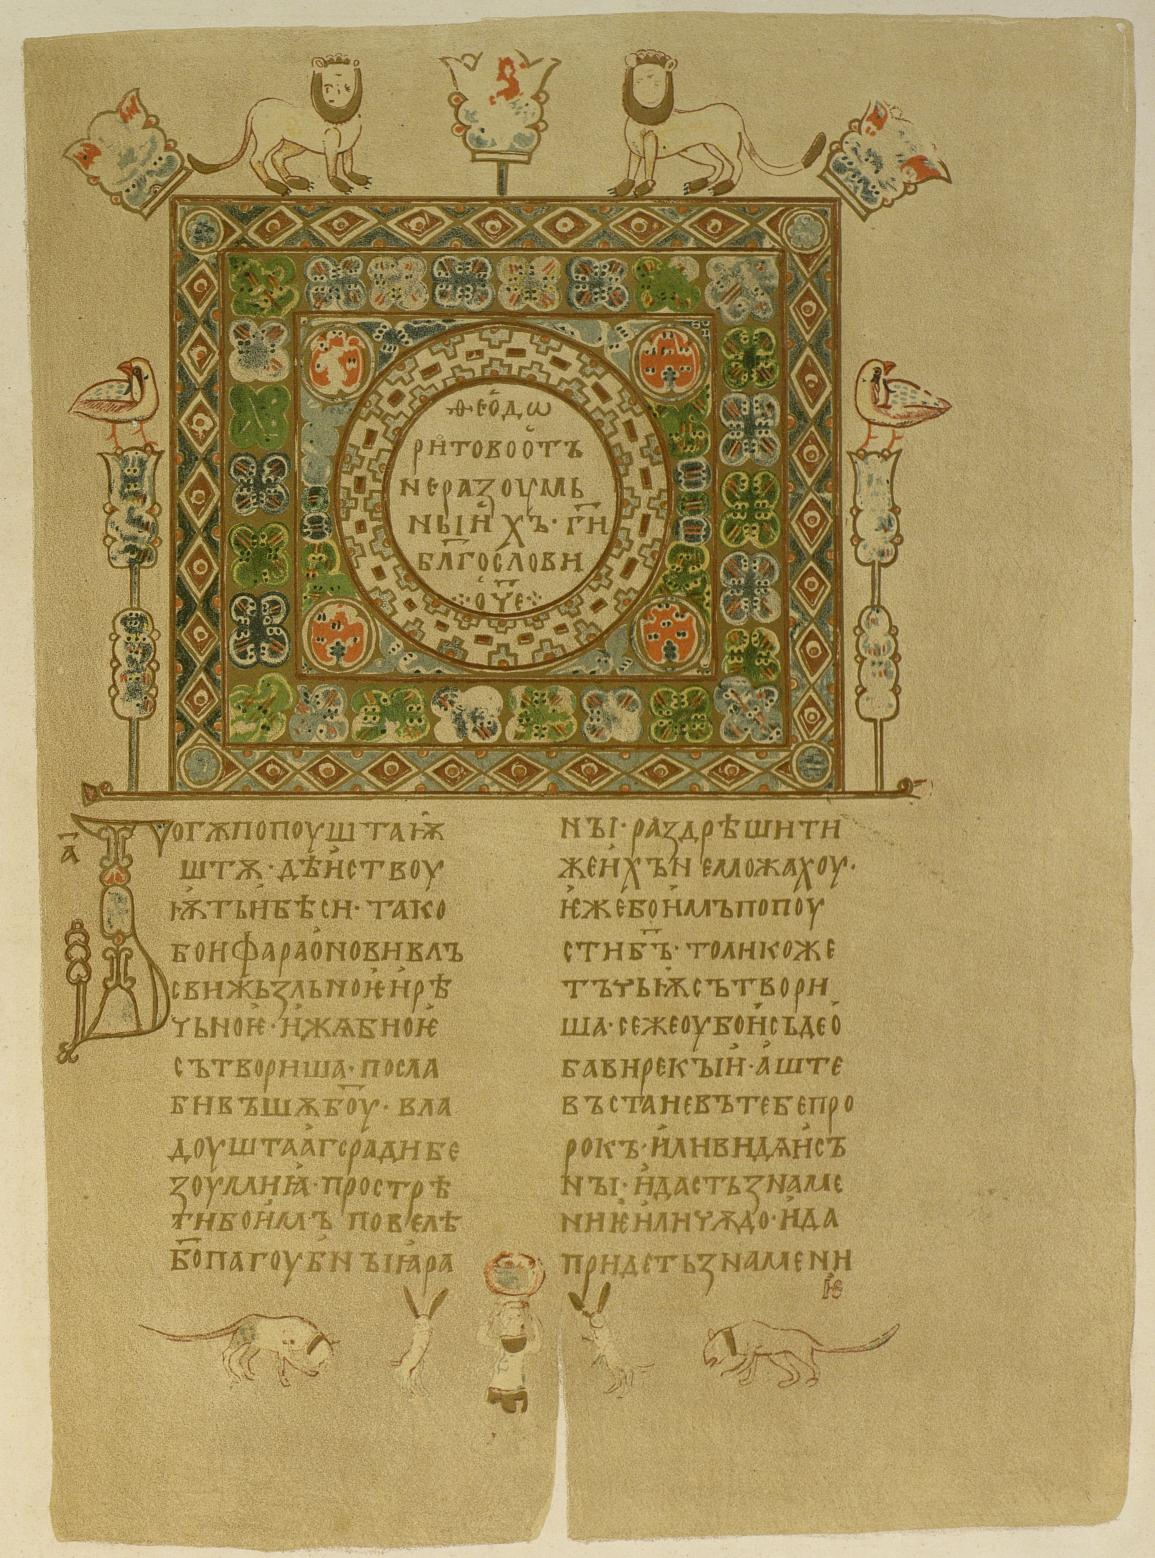 ѳео́дѡ
ритовоотъ
неразоумь
ныихъ· г҃и
бл҃гослови
о҃че
а҃
Могѫпопоуштаѭ
штѫ· дѣиствоу
ѭтьибѣси· тако
бонфараоновивлъ
свижьзльноѥ ирѣ
чьноѥ· ижѧбноѥ
сътвориша· посла
бивъшѫбо҃у· вла
доуштаагсрадибе
зоумиꙗ· прострѣ
тибоимъ повелѣ
б҃опагоубныꙗра
ны· раздрѣшити
жеихъ неможахоу·
ѥжебоимъпопоу
стиб҃ъ· толикоже
тъчьѭсътвори
ша· сежеоубоисъдео
бавирекыи· аште
въстаневътебепро
рокъ· иливидѧисъ
ны· идастьзнаме
ниѥиличѫдо· ида
придетьзнамени
ѥ